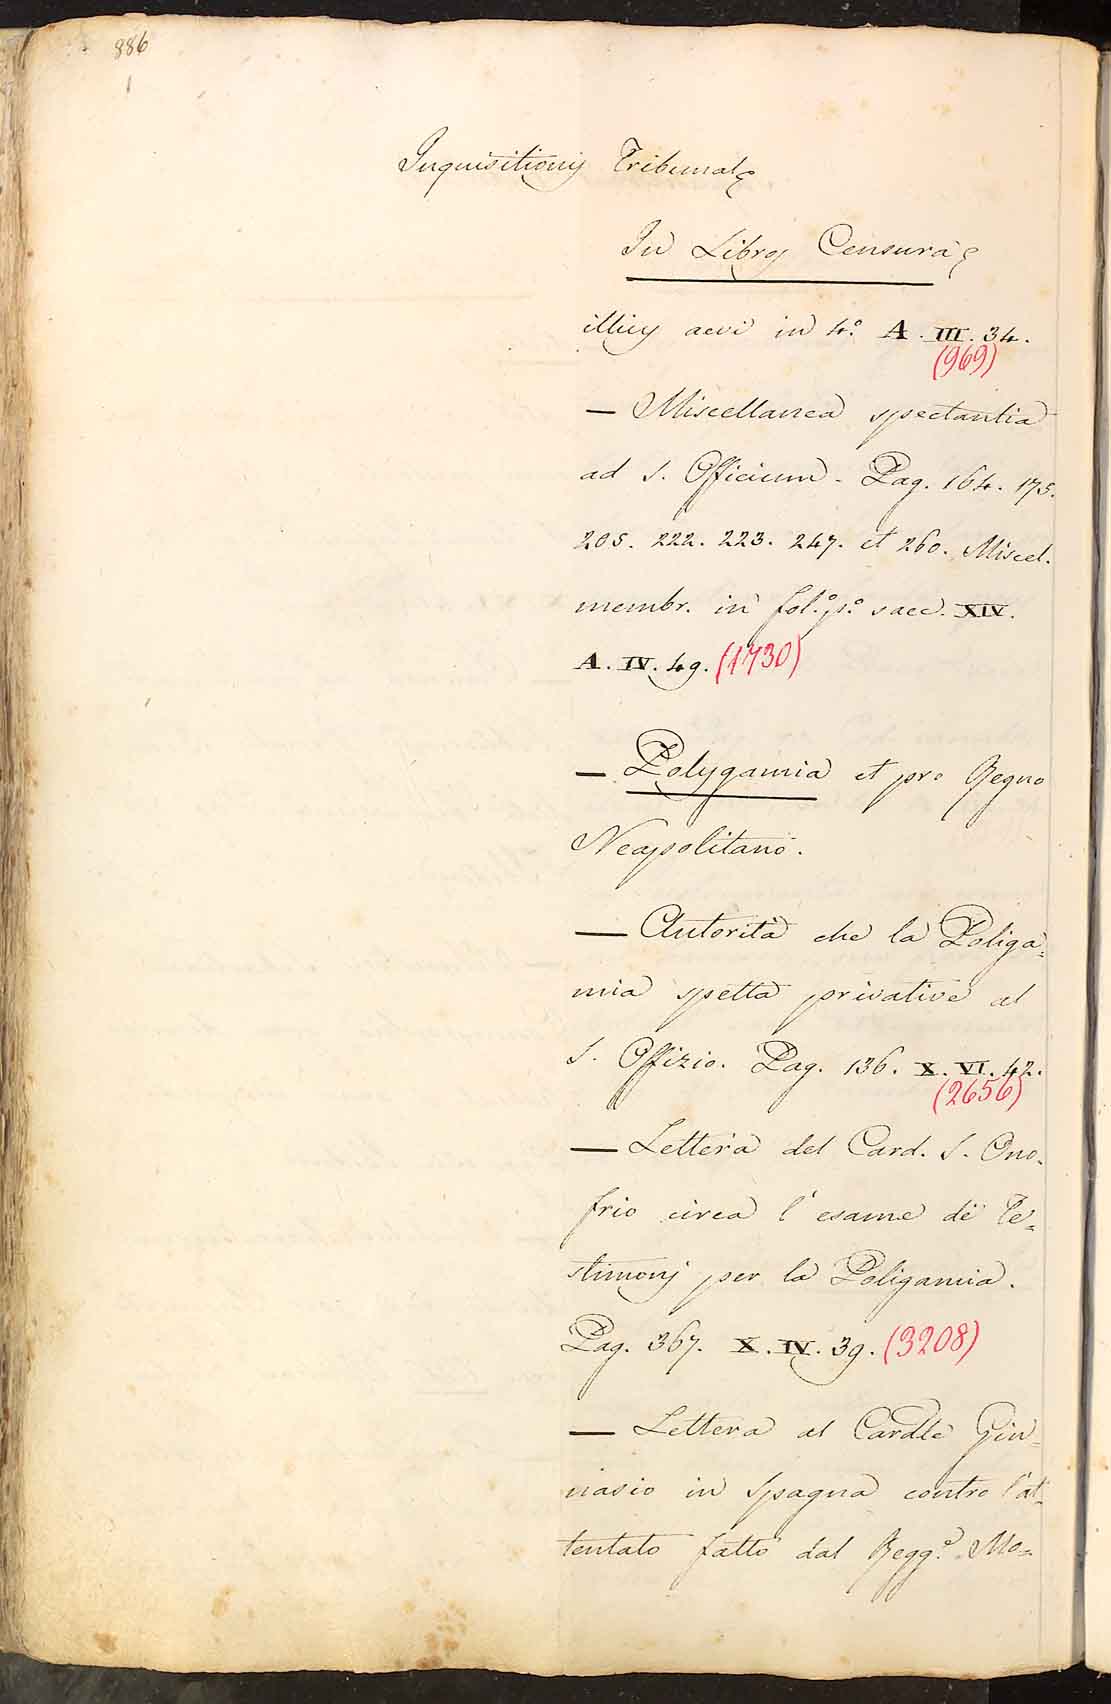 886
Inquisitionis Tribunal
In Libros Censura
illius aevi in 4.° A. III. 34.
(969)
— Miscellanea spectantia
ad S. Officium - Pag. 164. 175.
205. 222. 223. 247. et 260. Miscel.
membr. in fol.° p.° saec. XIV.
A. IV. 49. (1730)
— Polygamia et pro Regno
Neapolitano.
— Autorità che la Poliga=
mia spetta privative al
S. Offizio. Pag. 136. X. VI. 42.
(2656)
— Lettera del Card. S. Ono=
frio circa l'esame de Te=
stimonj per la Poligamia.
Pag. 367. X. IV. 39. (3208)
— Lettera al Cardle Gin=
nasio in Spagna contro l'at=
tentato fatto dal Regg.° Mo=